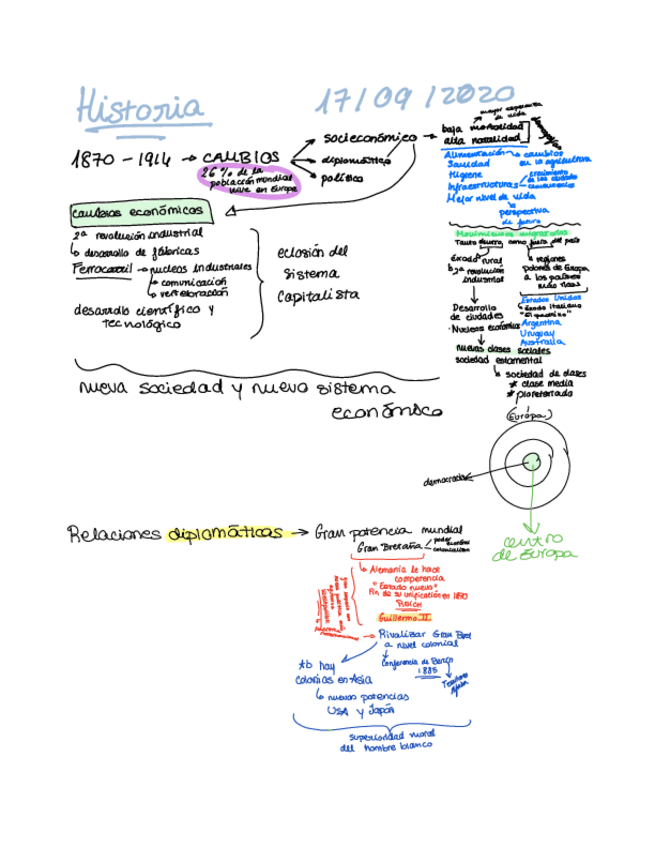 Historia
17/09/2020
1870-1914 → CAMBIOS
26% de la
población mundial
vive en Europa
socieconómico →
diplomático
político
mayor esperanza
de vida
baja mortalidad
alta natalidad
Alimentación → cambios
en la agricultura
Sanidad
Higiene
crecimiento
de las ciudades
Infraestructuras
Mejor nivel de vida
perspectiva
de futuro
cambios económicos
2ª revolución industrial
↳ desarrollo de fábricas
Ferrocarril → nucleos industriales
↳ comunicación
↳ vertebración
desarrollo científico y
tecnológico
eclosión del
sistema
capitalista
Movimientos migratorios
Tanto dentro, como fuera del país
éxodo rural
bja revolución
industrial
↳ regiones
pobres de Europa
a los países
más ricos
Estados Unidos
↳ éxodo italiano
Argentina
Uruguay
Australia
Desarrollo
de ciudades
Nucleos económicos
nuevas clases sociales
sociedad estamental
↳ sociedad de clases
* clase media
* ploretariado
nueva sociedad y nuevo sistema
económico
(Európa)
democracia
centro
de Europa
Relaciones diplomáticas → Gran potencia mundial
Gran Bretaña
poder
colonialismo
↳ Alemania le hace
competencia
"Estado nuevo"
Fin de su unificación en 1870
REICH
Guillermo II
→ Rivalizar Gran Bret
a nivel colonial
Conferencia de Berlín
1885
Ab hay
colonias en Asia
↳ nuevas potencias
USA y Japón
superioridad moral
del hombre blanco